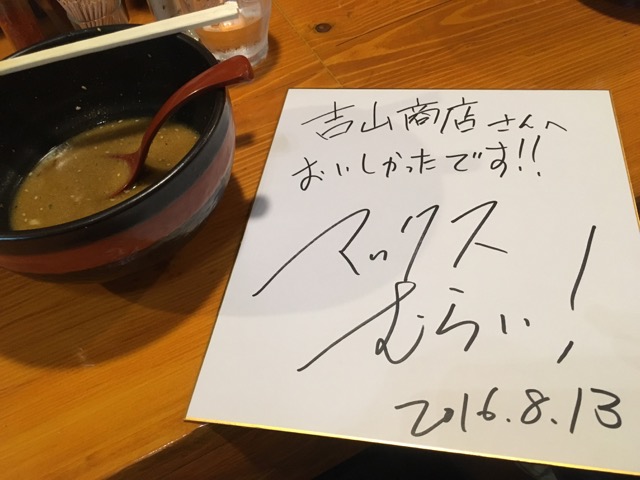 吉山商店さんへ
おいしかったです!!
マックス
むらい!
2016.8.13